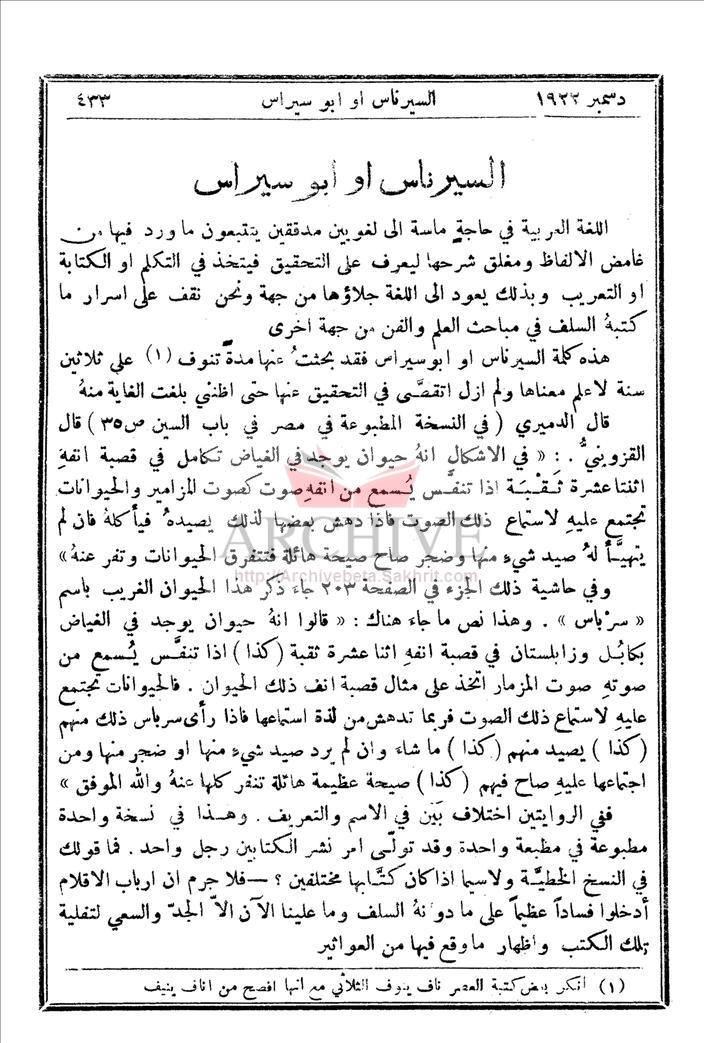 دسمبر ١٩٢٢ السيرناس او ابو سيراس ٤٣٣
السيرناس او ابو سيراس
اللغة العربية في حاجةٍ ماسة الى لغويين مدققين يتتبعون ما ورد فيها من
غامض الالفاظ ومغلق شرحها ليعرف على التحقيق فيتخذ في التكلم او الكتابة
او التعريب وبذلك يعود الى اللغة جلاؤها من جهة ونحن نقف على اسرار ما
كتبهُ السلف في مباحث العلم والفن من جهة اخرى
هذه كلمة السيرناس او ابوسيراس فقد بحثتُ عنها مدةً تنوف (١) على ثلاثين
سنة لاعلم معناها ولم ازل اتقصَّى في التحقيق عنها حتى اظنني بلغت الغاية منهُ
قال الدميري (في النسخة المطبوعة في مصر في باب السين ص٣٥) قال
القزوينيُّ . : « في الاشكال انهُ حيوان يوجد في الغياض تكامل في قصبة انفهِ
اثنتا عشرة ثَقْبَة اذا تنفَّس يُسمع من انفهِ صوت كصوت المزامير والحيوانات
تجتمع عليهِ لاستماع ذلك الصوت فاذا دهش بعضها لذلك يصيدهُ فيأكلهُ فان لم
يتهيَّأ لهُ صيد شيءٍ منها وضجر صاح صيحة هائلة فتتفرق الحيوانات وتفر عنهُ»
وفي حاشية ذلك الجزء في الصفحة ٢٠٣ جاءَ ذكر هذا الحيوان الغريب باسم
« سرْباس » . وهذا نص ما جاءَ هناك : « قالوا انهُ حيوان يوجد في الغياض
بكابُل وزابلستان في قصبة انفهِ اثنا عشرة ثقبة (كذا) اذا تنفَّس يُسمع من
صوتهِ صوت المزمار اتخذ على مثال قصبة انف ذلك الحيوان . فالحيوانات تجتمع
عليهِ لاستماع ذلك الصوت فربما تدهش من لذة استماعها فاذا رأى سرباس ذلك منهم
(كذا) يصيد منهم (كذا) ما شاءَ وان لم يرد صيد شيءٍ منها او ضجر منها ومن
اجتماعها عليهِ صاح فيهم (كذا) صيحة عظيمة هائلة تنفر كلها عنهُ والله الموفق »
ففي الروايتين اختلاف بَيّن في الاسم والتعريف . وهذا في نسخة واحدة
مطبوعة في مطبعة واحدة وقد تولَّى امر نشر الكتابين رجل واحد . فما قولك
في النسخ الخطيَّة ولاسيما اذا كان كتَّابها مختلفين ؟ —فلا جرم ان ارباب الاقلام
أدخلوا فساداً عظيماً على ما دوَّنهُ السلف وما علينا الآن الاَّ الجدّ والسعي لتفلية
تلك الكتب واظهار ما وقع فيها من العواثير
(١) انكر بعض كتبة العصر ناف ينوف الثلاثي مع انها افصح من اناف ينيف
ARCHIVE
http://Archivebeta.Sakhrit.com